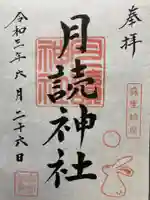 奉拝
月読神社
令和三年六月二十六日